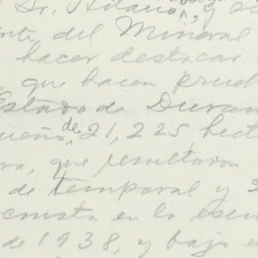 Sr. Aitano, y su
nte del Mineral
hacer destacar
que hacen prueb
Estado de Duran
ueño, de 21,225 hect
ra, que resultaron
de temporal y 2
cnista en la escri
de 1938, y bajo